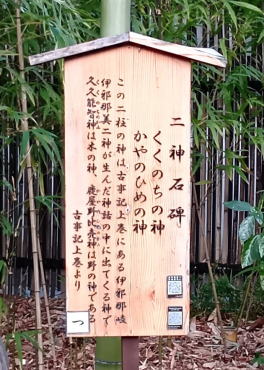 二神石碑
くくのちの神
かやのひめの神
この二柱の神は古事記上巻にある伊邪那岐
伊邪那美二神が生んだ神話の中に出てくる神で
久久能智神は木の神、鹿屋野比売神は野の神である
古事記上巻より
つ